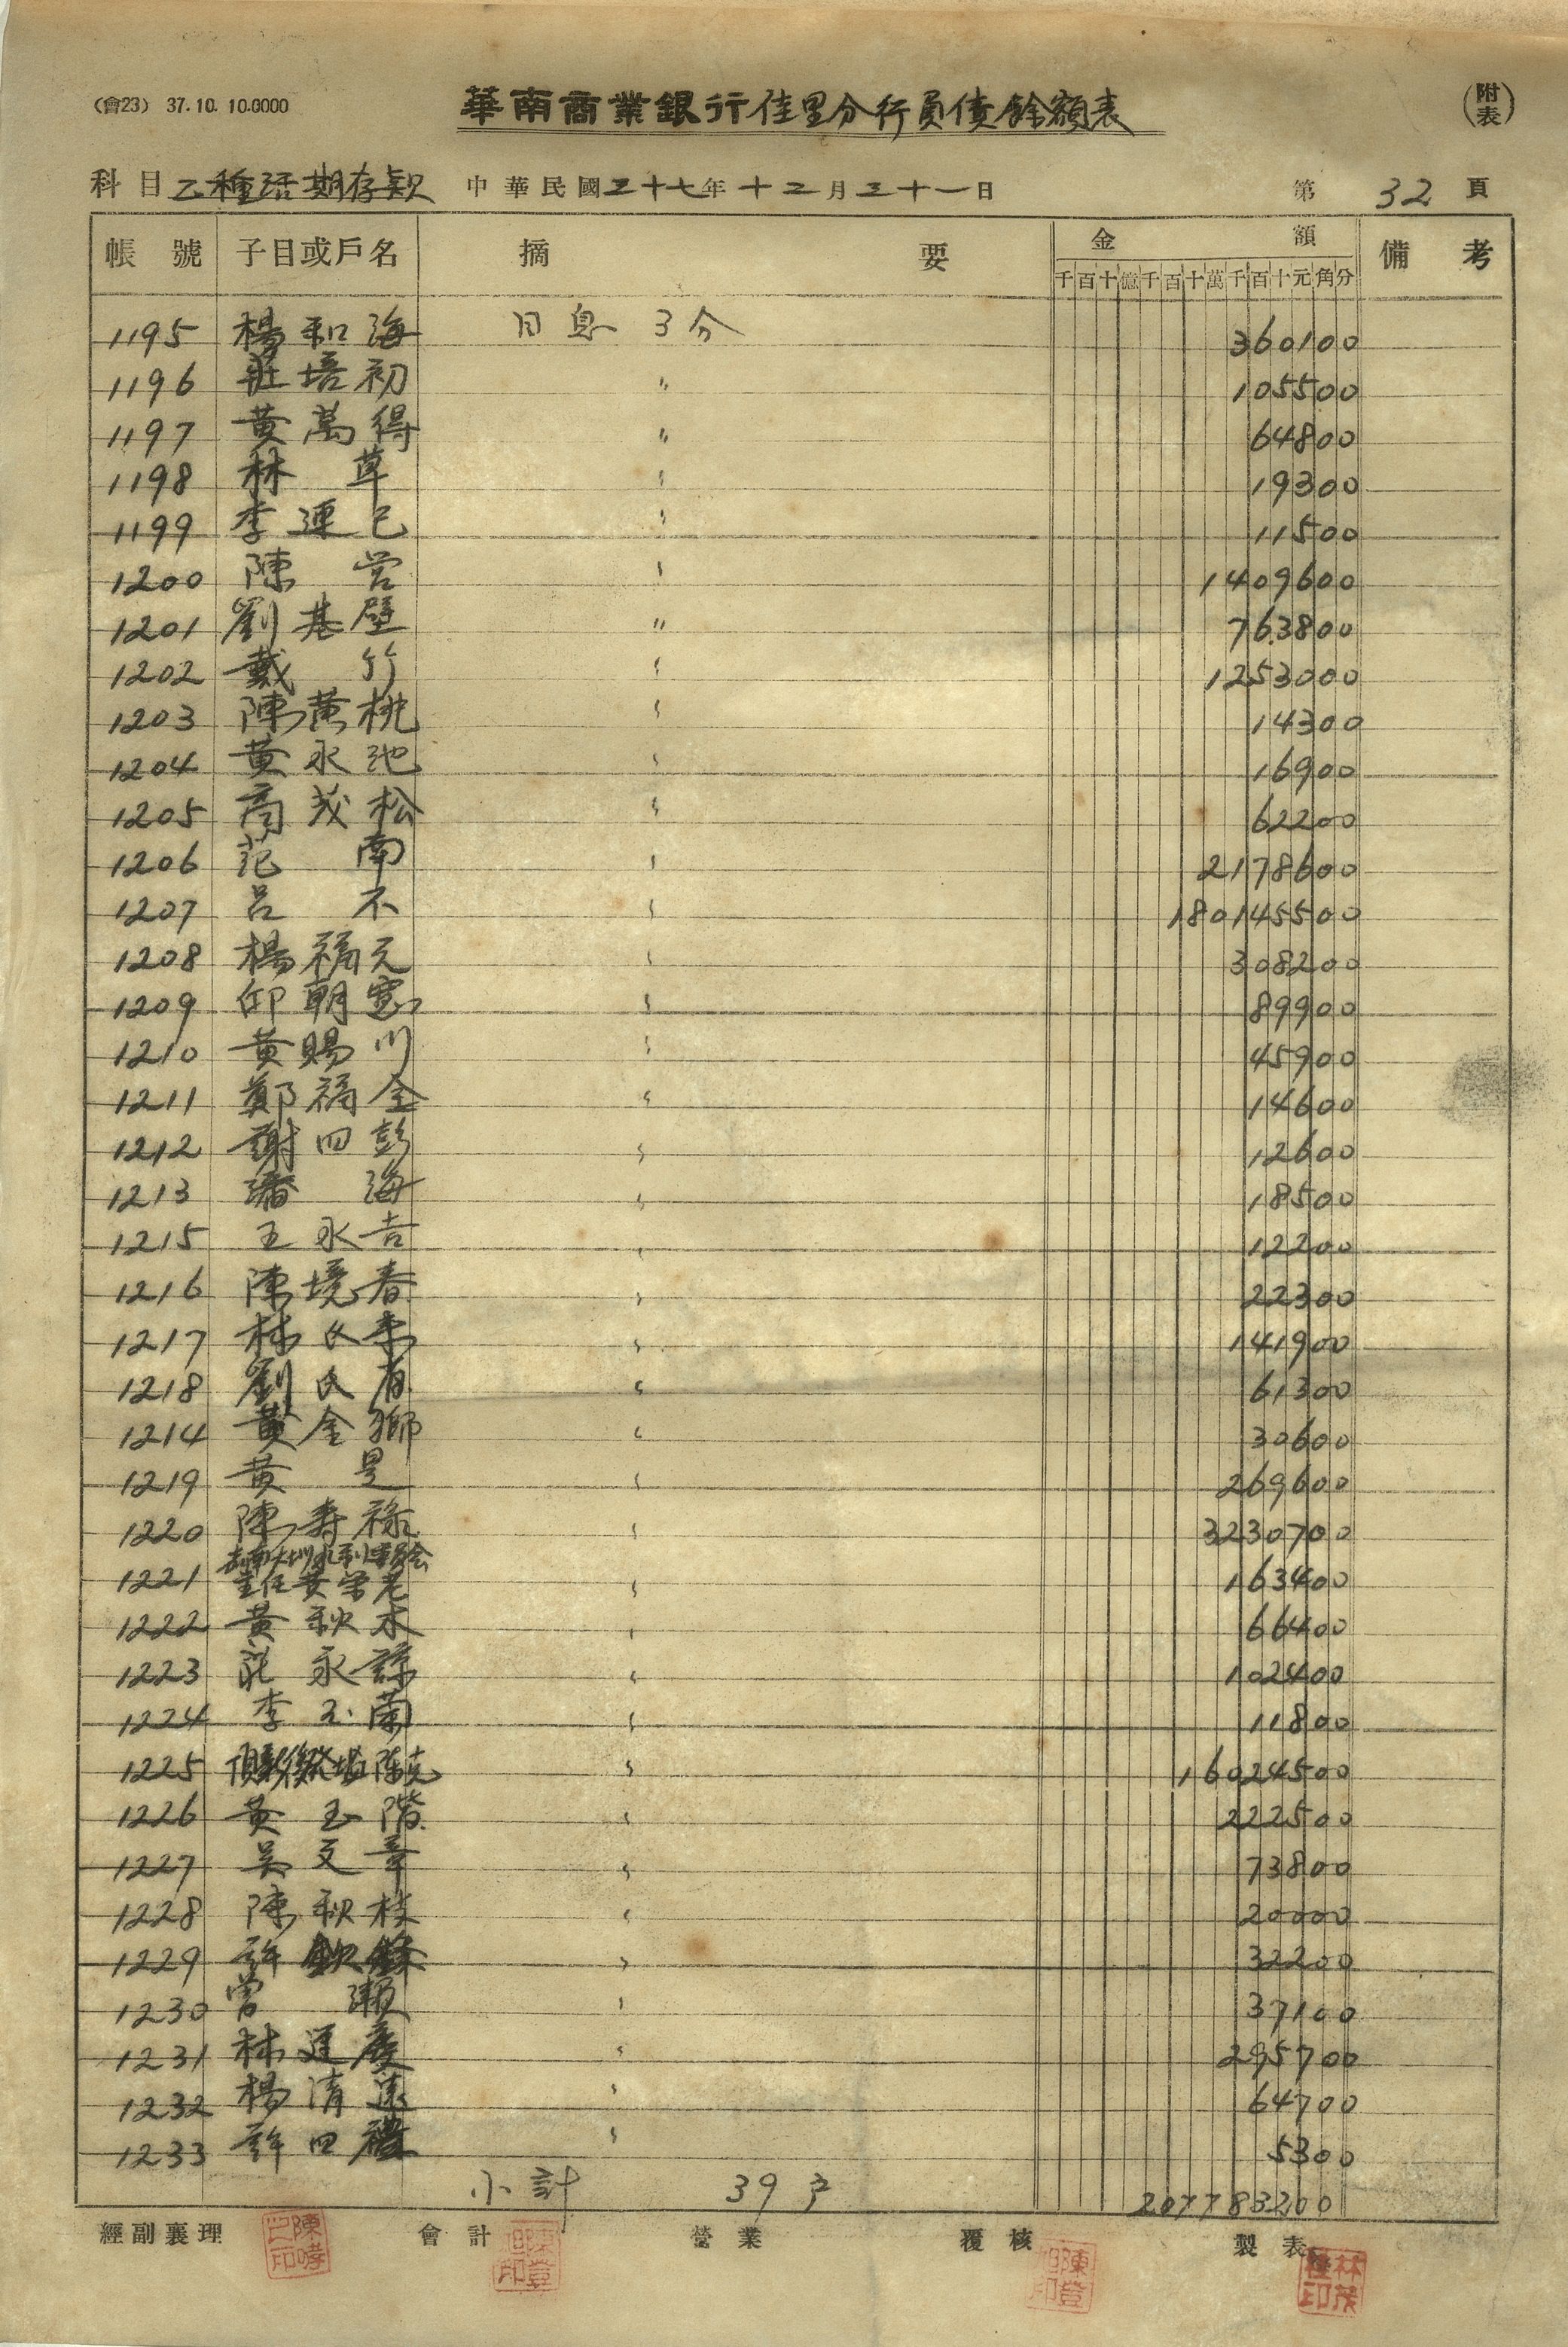 (會23) 37.10.10.6000
華南商業銀行佳里分行員債餘額表
(附表)
科目 乙種活期存款 中華民國三十七年十二月三十一日 第 32 頁
帳號 子目或戶名 摘要 金額 備考
千百十億千百十萬千百十元角分
1195 楊和海 日息 3分 360100
1196 莊培初 〃 105500
1197 黃萬得 〃 64800
1198 林草 〃 19300
1199 李連已 〃 11500
1200 陳営 〃 1409600
1201 劉基壁 〃 763800
1202 戴竹 〃 1253000
1203 陳黃桃 〃 14300
1204 黃永池 〃 16900
1205 高茂松 〃 62200
1206 范南 〃 2178600
1207 呂不 〃 180145500
1208 楊福元 〃 308200
1209 邱朝寬 〃 89900
1210 黃賜川 〃 45900
1211 鄭福全 〃 14600
1212 謝四彭 〃 12600
1213 潘海 〃 18500
1215 王永吉 〃 12200
1216 陳境春 〃 22300
1217 林氏來 〃 141900
1218 劉氏有 〃 61300
1214 黃金獅 〃 30600
1219 黃是 〃 269600
1220 陳壽祿 〃 3230700
嘉南大圳水利委員會
1221 主任黃榮老 〃 163400
1222 黃秋木 〃 66400
1223 莊永諒 〃 102400
1224 李玉蘭 〃 11800
1225 陳克 〃 16024500
1226 黃玉階 〃 222500
1227 吳文章 〃 73800
1228 陳秋枝 〃 20000
1229 許欽鋒 〃 32200
1230 曾瀨 〃 37100
1231 林運慶 〃 295700
1232 楊清遠 〃 64700
1233 許四禮 〃 5300
小計 39戶 207783200
經副襄理 會計 營業 覆核 製表